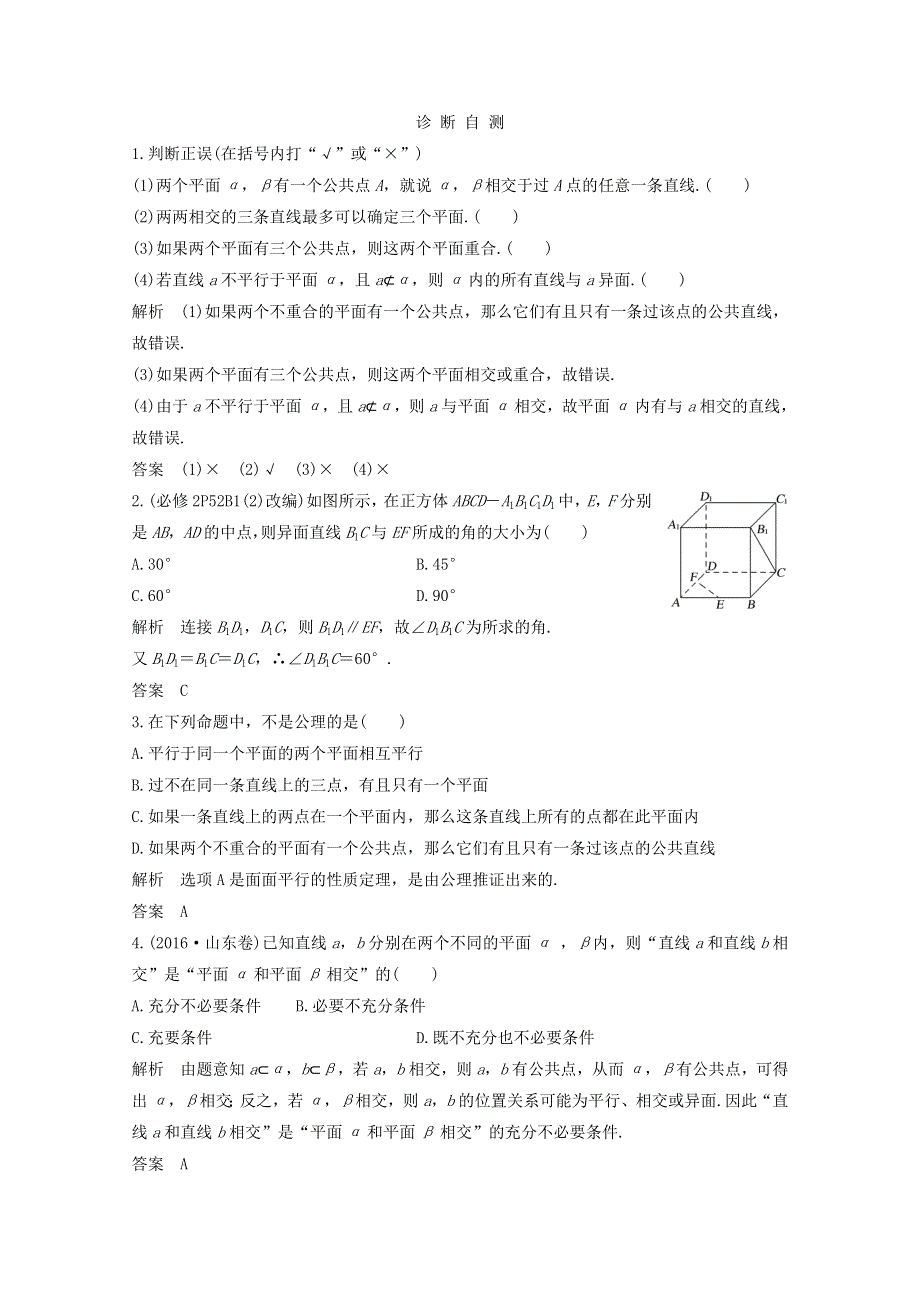 诊 断 自 测
1.判断正误(在括号内打“√”或“×”)
(1)两个平面 α，β有一个公共点 A，就说 α，β相交于过 A 点的任意一条直线.(　　)
(2)两两相交的三条直线最多可以确定三个平面.(　　)
(3)如果两个平面有三个公共点，则这两个平面重合.(　　)
(4)若直线 a 不平行于平面 α，且 a⊄α，则 α 内的所有直线与 a 异面.(　　)
解析　(1)如果两个不重合的平面有一个公共点，那么它们有且只有一条过该点的公共直线，
故错误.
(3)如果两个平面有三个公共点，则这两个平面相交或重合，故错误.
(4)由于 a 不平行于平面 α，且 a⊄α，则 a 与平面 α 相交，故平面 α 内有与 a 相交的直线，
故错误.
答案　(1)×　(2)√　(3)×　(4)×
2.(必修 2P52B1(2)改编)如图所示，在正方体 ABCD－A₁B₁C₁D₁中，E，F 分别
是 AB，AD 的中点，则异面直线 B₁C 与 EF 所成的角的大小为(　　)
A.30°　　B.45°
C.60°　　D.90°
D₁ C₁
A₁ B₁
D C
F
A E B
解析　连接 B₁D₁，D₁C，则 B₁D₁∥EF，故∠D₁B₁C 为所求的角.
又 B₁D₁＝B₁C＝D₁C，∴∠D₁B₁C＝60°.
答案　C
3.在下列命题中，不是公理的是(　　)
A.平行于同一个平面的两个平面相互平行
B.过不在同一条直线上的三点，有且只有一个平面
C.如果一条直线上的两点在一个平面内，那么这条直线上所有的点都在此平面内
D.如果两个不重合的平面有一个公共点，那么它们有且只有一条过该点的公共直线
解析　选项 A 是面面平行的性质定理，是由公理推证出来的.
答案　A
4.(2016·山东卷)已知直线 a，b 分别在两个不同的平面 α ，β内，则“直线 a 和直线 b 相
交”是“平面 α 和平面 β 相交”的(　　)
A.充分不必要条件　　B.必要不充分条件
C.充要条件　　D.既不充分也不必要条件
解析　由题意知 a⊂α，b⊂β，若 a，b 相交，则 a，b 有公共点，从而 α，β有公共点，可得
出 α，β相交；反之，若 α，β相交，则 a，b 的位置关系可能为平行、相交或异面.因此“直
线 a 和直线 b 相交”是“平面 α 和平面 β 相交”的充分不必要条件.
答案　A